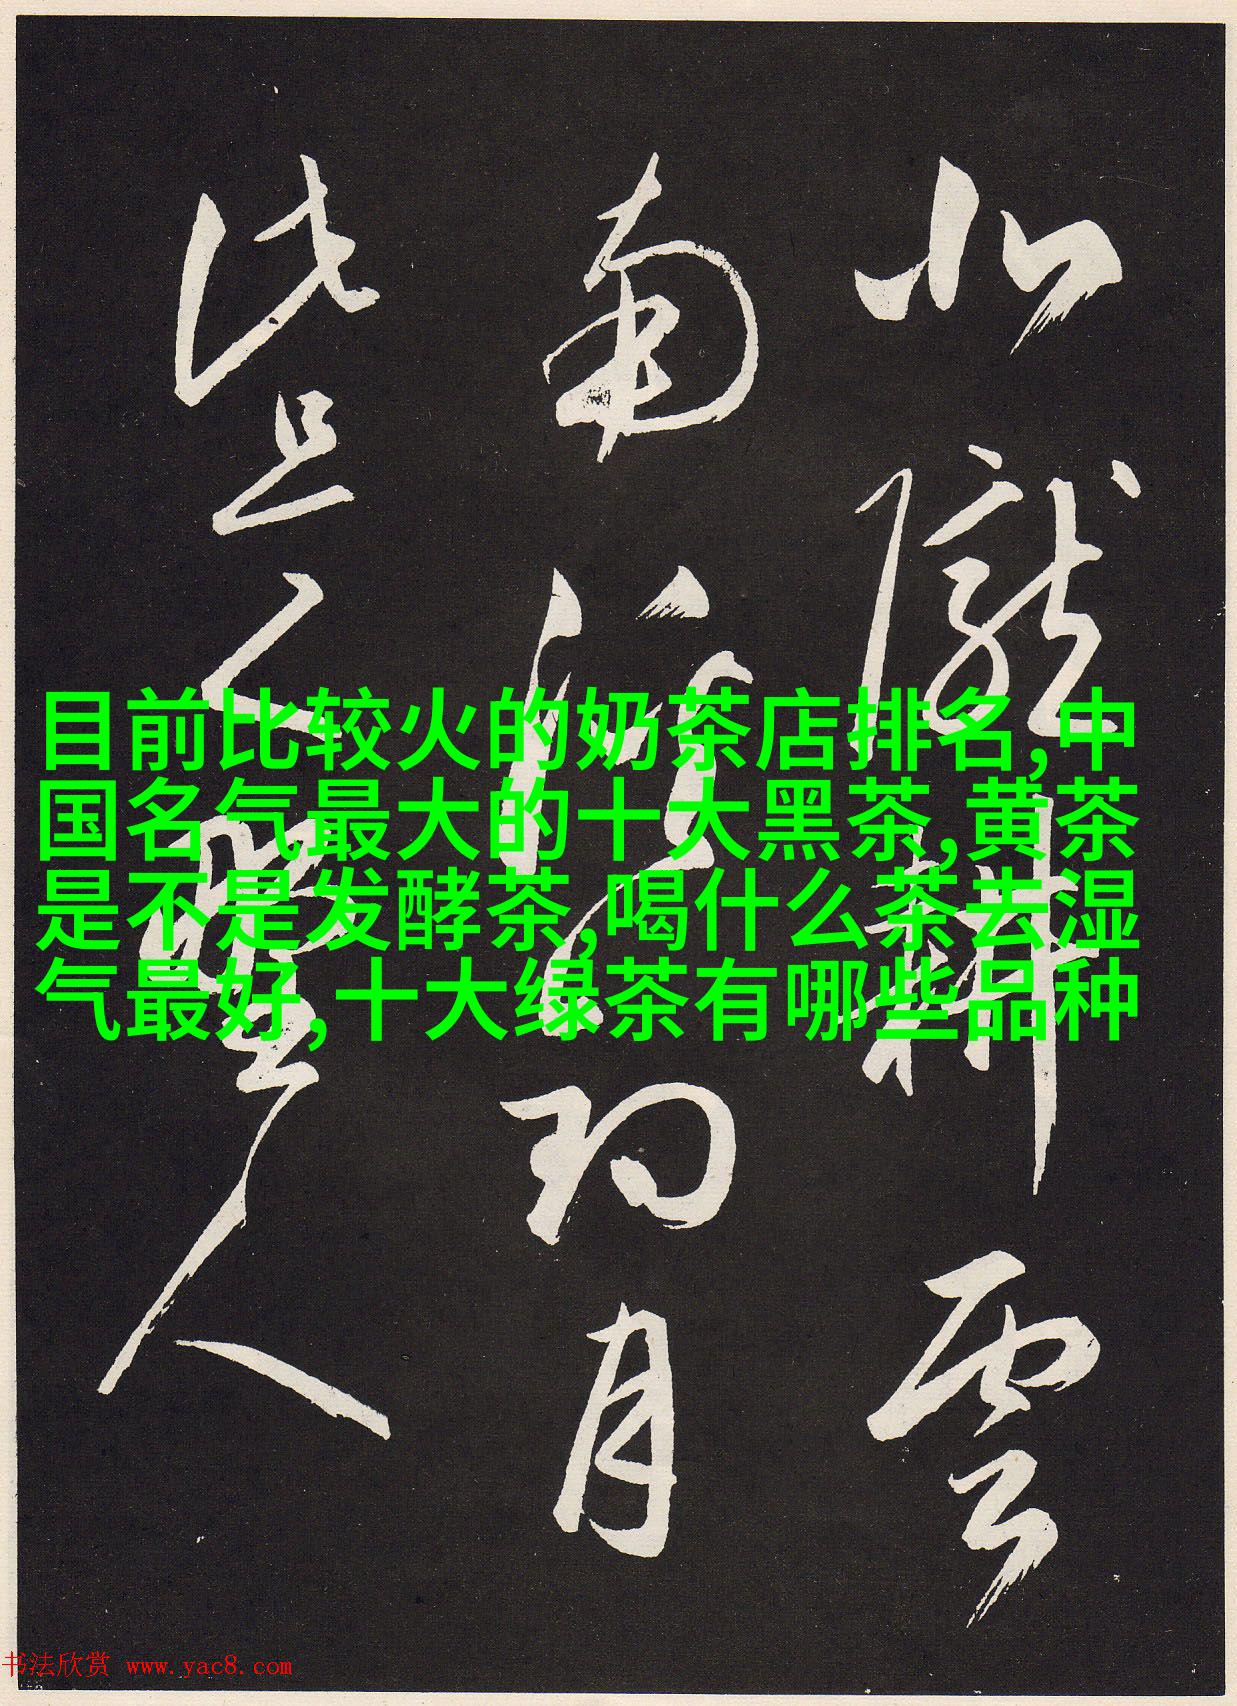 北隴耕雲
南溪釣月
此是野人
目前比较火的奶茶店排名,中
国名气最大的十大黑茶,黄茶
是不是发酵茶,喝什么茶去湿
气最好,十大绿茶有哪些品种
书法欣赏 www.yac8.com